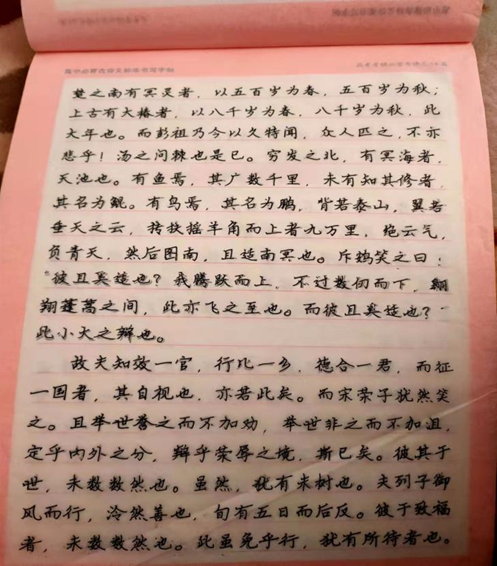 楚之南有冥灵者，以五百岁为春，五百岁为秋；
上古有大椿者，以八千岁为春，八千岁为秋，此
大年也。而彭祖乃今以久特闻，众人匹之，不亦
悲乎！汤之问棘也是已。穷发之北，有冥海者，
天池也。有鱼焉，其广数千里，未有知其修者，
其名为鲲。有鸟焉，其名为鹏，背若泰山，翼若
垂天之云，抟扶摇羊角而上者九万里，绝云气，
负青天，然后图南，且适南冥也。斥鴳笑之曰：
“彼且奚适也？我腾跃而上，不过数仞而下，翱
翔蓬蒿之间，此亦飞之至也。而彼且奚适也？”
此小大之辩也。
故夫知效一官，行比一乡，德合一君，而征
一国者，其自视也，亦若此矣。而宋荣子犹然笑
之。且举世誉之而不加劝，举世非之而不加沮，
定乎内外之分，辩乎荣辱之境，斯已矣。彼其于
世，未数数然也。虽然，犹有未树也。夫列子御
风而行，泠然善也，旬有五日而后反。彼于致福
者，未数数然也。此虽免乎行，犹有所待者也。